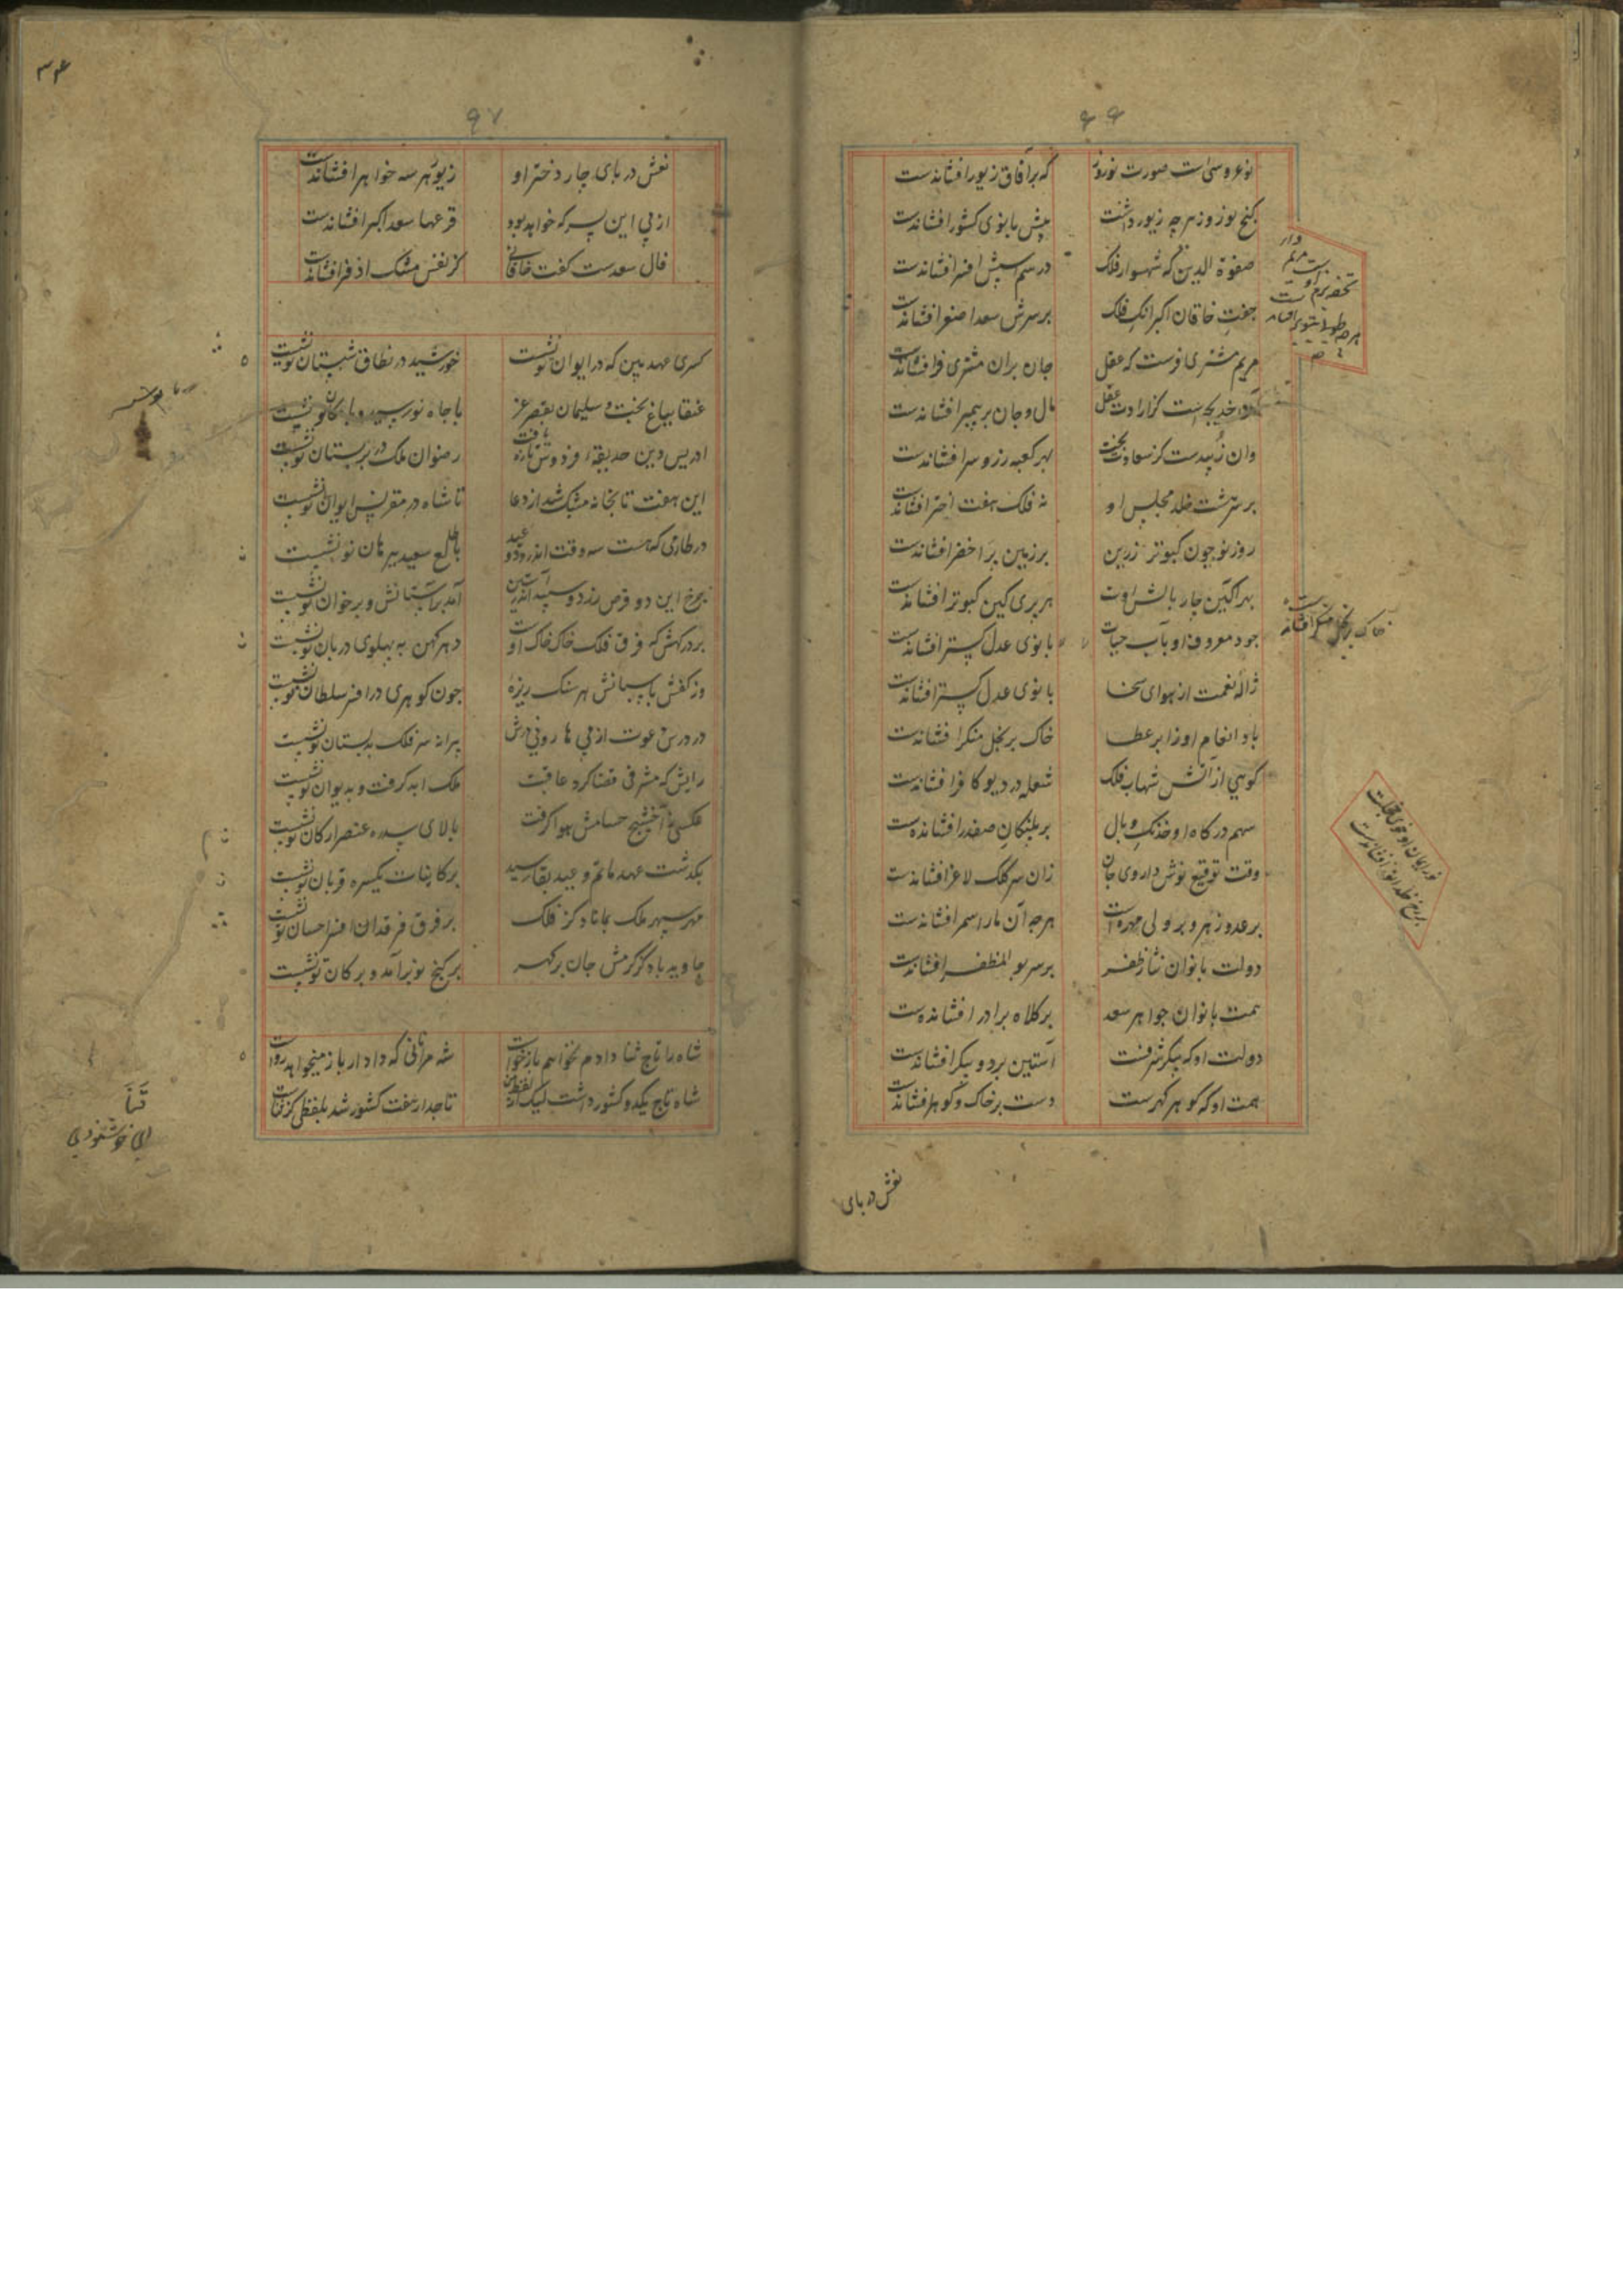 ۶۶
نوعروسی است صورت نوروز
که بر آفاق زیور افشاندست
گنج نوروز هر چه زیور داشت
پیش بانوی کشور افشاندست
صفوة الدین که شهسوار فلک
در سم اسپش افسر افشاندست
جفت خاقان اکبر آنک فلک
بر سرش سعد اصغر افشاندست
مریم مشتری فرست که عقل
جان بران مشتری فر افشاندست
خدیجه است کز ارادت عقل
مال و جان بر پیمبر افشاندست
وان زبیدست کز سعادت بخت
بهر کعبه زر و سر افشاندست
بر سر هشت خلد مجلس او
نه فلک هفت اختر افشاندست
روز نو چون کبوتر زرین
بر زمین پر اخضر افشاندست
بهر آگین چار بالش اوست
هر پری کین کبوتر افشاندست
جود معروف او بآب حیات
بانوی عدل گستر افشاندست
ژاله نعمت از هوای سخا
بانوی عدل گستر افشاندست
باد انعام او ز ابر عطا
خاک بر بخل منکر افشاندست
گویی از آتش شهاب فلک
شعله در دیو کافر افشاندست
سهم درگاه او خدنگ وبال
بر پلنگان صفدر افشاندست
وقت توقیع نوش داروی جان
زان سر کلک لاغر افشاندست
بر عدو زهر و بر ولی مهره است
هر چه آن مار اسمر افشاندست
دولت بانوان نثار ظفر
بر سر بو المظفر افشاندست
همت بانوان جواهر سعد
بر کلاه برادر افشاندست
دولت او که پیکر شرفست
آستین بر دو پیکر افشاندست
همت او که گوهر گهرست
دست بر خاک و گوهر افشاندست
خاک بر بخل منکر افشاندست
نعش در پای
۶۷
نعش در پای چار دختر او
زیور هر سه خواهر افشاندست
از پی این پسر که خواهد بود
قرعها سعد اکبر افشاندست
فال سعدست گفت خاقانی
کز نفس مشک اذفر افشاندست
کسری عهد بین که در ایوان نو نشست
خورشید در نطاق شبستان نو نشست
عنقا بباغ بخت و سلیمان بقصر عز
با جاه نو رسید و با مکان نو نشست
ادریس دین حدیقه فردوس تازه یافت
رضوان ملک در بر بستان نو نشست
این هفت تابخانه مشبک شد از دعا
تا شاه در مقرنس ایوان نو نشست
در طارمی که هست سه وقت اندرو دو عید
با طلع سعید پیرهان نو نشست
چرخ این دو قرص زرد و سپید اندر آستین
آمد بر آستانش و بر خوان نو نشست
بر درگهش که فرق فلک خاک خاک اوست
دهر کهن به پهلوی دربان نو نشست
وز کفش پاسبانش هر سنگ ریزه
چون گوهری در افسر سلطان نو نشست
در درس دعوت از پی هارونی درش
پیرانه سر فلک بدبستان نو نشست
رایش که مشرفی قضا کرد عاقبت
ملک ابد گرفت و بدیوان نو نشست
عکسی ز آخشیج حسامش هوا گرفت
بالای سدره عنصر ارکان نو نشست
بگذشت عهد ماتم و عید بقا رسید
بر کاینات یکسره قربان نو نشست
مهر سپهر ملک بماناد کز فلک
بر فرق فرقدان افسر احسان نو نشست
جاوید باد کز کرمش جان بر گهر
بر گنج نو برآمد و بر کان نو نشست
شاه را تاج ثنا دادم نخواهم باز خواست
شه مرا نانی که داد ار باز میخواهد رواست
شاه تاج یکدو کشور داشت لیک از لفظ من
تاجدار هفت کشور شد بلفظی کز ثناست